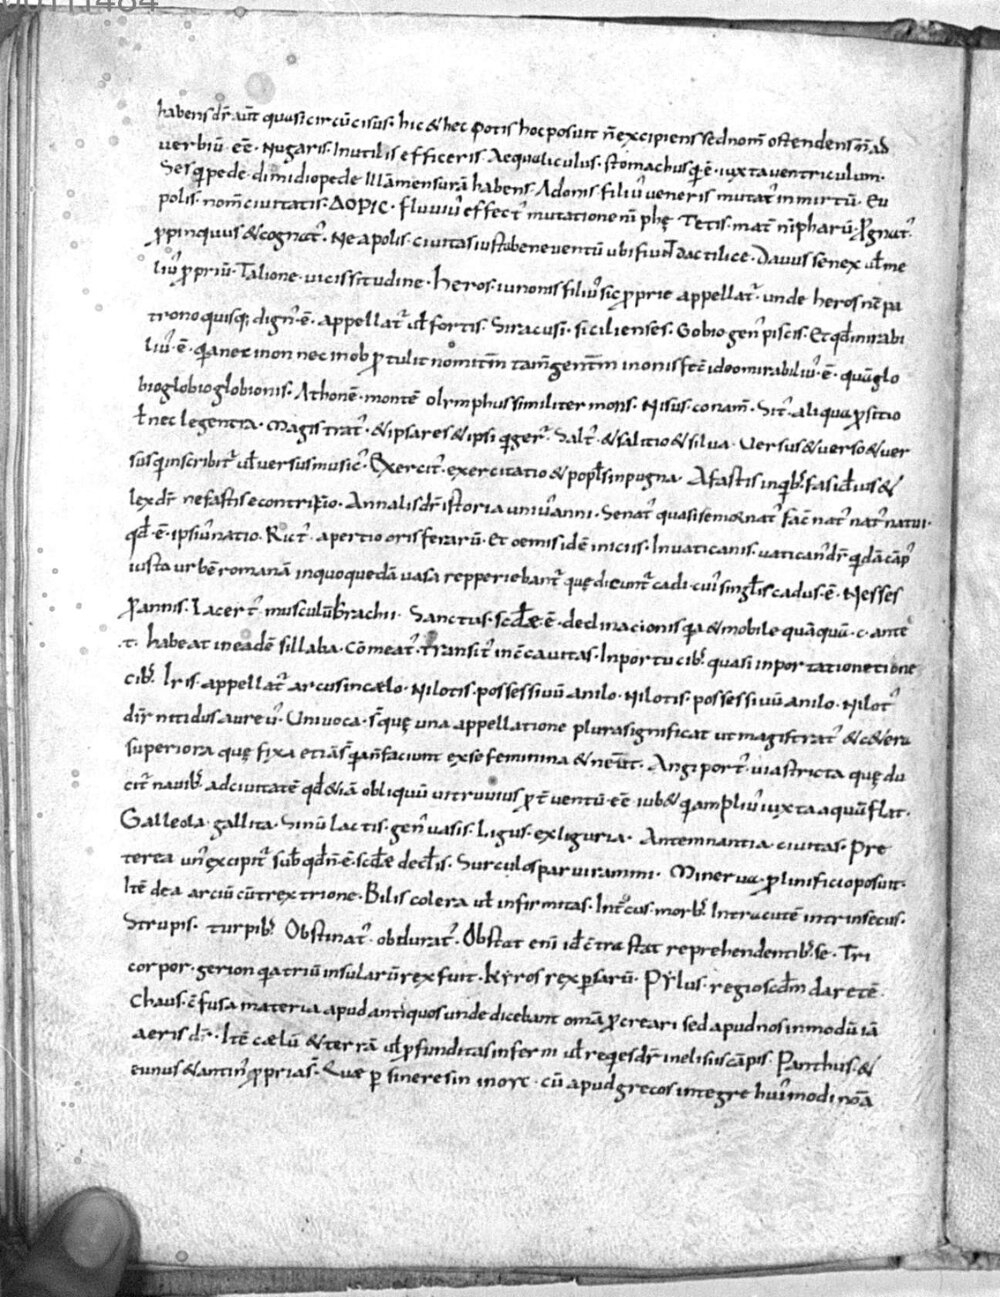 habens dr̄ aut̄ quasi circūcisus. hic & hec potis hoc posuit n̄ excipiens sed nom̄ ostendens n̄ ad
verbiū eē. Nugaris. Inutilis efficeris. Aequaliculus. stomachus q̄ ē iuxta ventriculum.
Sesq̄pede. dimidiopede illā mensurā habens. Adonis filiu᾽ veneris mutat᾽ in mirtū. Eu
polis. nom̄ civitatis. ΔOPIC. fluviu᾽ effect᾽ mutatione m̄ phę Tetis. mat᾽ nīpharū. Pgnat᾽.
ppinquus & cognat᾽. Neapolis. civitas iusta beneventū ubi fiunt dactilice. Davus senex ul̄ me
liu᾽ ppriū. Talione. vicissitudine. Heros. iunonis filiu᾽ sic pprie appellat᾽. unde heros
trono quisq; dign᾽ ē. appellat᾽ ul̄ fortis. Siracusi. sicilienses. Gobio gen᾽ piscis. Et qd̄ mirabi
liu᾽ ē. q̄a nec in on nec in ob ptulit nomit̄m tam̄ gent̄m in onis fec̄ ideo mirabiliu᾽ ē. quā glo
bio globio globionis. Athonē. montē olymphus similiter mons. Nisus. conam̄. Sit᾽. aliqua psitio
ł nec legentia. Magistrat᾽. & ipsa res & ipsi q̄ ger᾽. Salt᾽. & salitio & silva. Versus & verso & ver
sus q̄ inscribit᾽ ul̄ versus music᾽. Exercit᾽. exercitatio & popl̄s in pugna. A fastis in q̄b᾽ fas id̄ ius &
lex dr̄ nefastis e contrīo. Annalis dr̄ istoria uniu᾽ anni. Senat᾽ quasi
qd̄ ē ipsiu᾽ natio. Rict᾽. apertio oris ferarū. Et oemis idē iniciis. In vaticanis. vatican᾽ dr̄ q̄dā cāp᾽
iusta urbē romanā in quo quedā vasa repperiebant᾽ quę dicunt᾽ cadi. cui᾽ singl̄is cadus ē. Messes
p annis. Lacert᾽. musculū brachii. Sanctus. scdæ ē declinacionis q̄a & mobile quāquā. c. ante
.t. habeat in eadē sillaba. Cōmeat᾽. transit᾽ in c̄cavitas. In portu cib᾽ quasi in portatione
cib᾽. Iris. appellat᾽ arcus in cælo. Nilotis. possessivū a nilo. Nilotis. possessivū a nilo. Nilot᾽
dir̄ nitidus aureu᾽. Univoca. s̄ quę una appellatione plura significat ut magistrat᾽ & cętera
superiora quę fixa etiā s̄ q̄a n̄ faciunt ex se feminina & neut̄. Angiport᾽. via stricta quę du
cit᾽ navib᾽ ad civitatē qd̄ &iā obliquū vitruvius p t̄ ventū eē iub& q̄ ampliu᾽ iuxta aquā flat.
Galleola. gallita. Sinū lactis. gen᾽ vasis. Ligus. ex liguria. Antemnantia. civitas. Pre
terea un᾽ excipit᾽ sub qd̄ n̄ ē scdæ decl̄is. Surculos parvi rammi. Minerva. p linificio posuit.
Itē dea arciū cū trextrione. Bilis colera ul̄ infirmitas. Int᾽cus. morb᾽. Intra cutē intrinsecus.
Strupis. turpib᾽. Obstinat᾽. obdurat᾽. Obstat eni᾽ id̄ c̄tra stat reprehendentib᾽ se. Tri
corpor. gerion q̄a triū insularū rex fuit. Kyros rex psarū. Pylus. regio scdm̄ daretē.
Chaus. c̄fusa materia apud antiquos unde dicebant omā pcreari sed apud nos in modū iā
aeris dr̄. Itē cælū & terrā ul̄ pfunditas inferni ul̄ reqes dr̄ in elisiis cāpis. Panthus. &
eunus & antin᾽ pprias᾽. Quæ p sineresin in orc. cū apud grecos integre hui᾽modi nōā